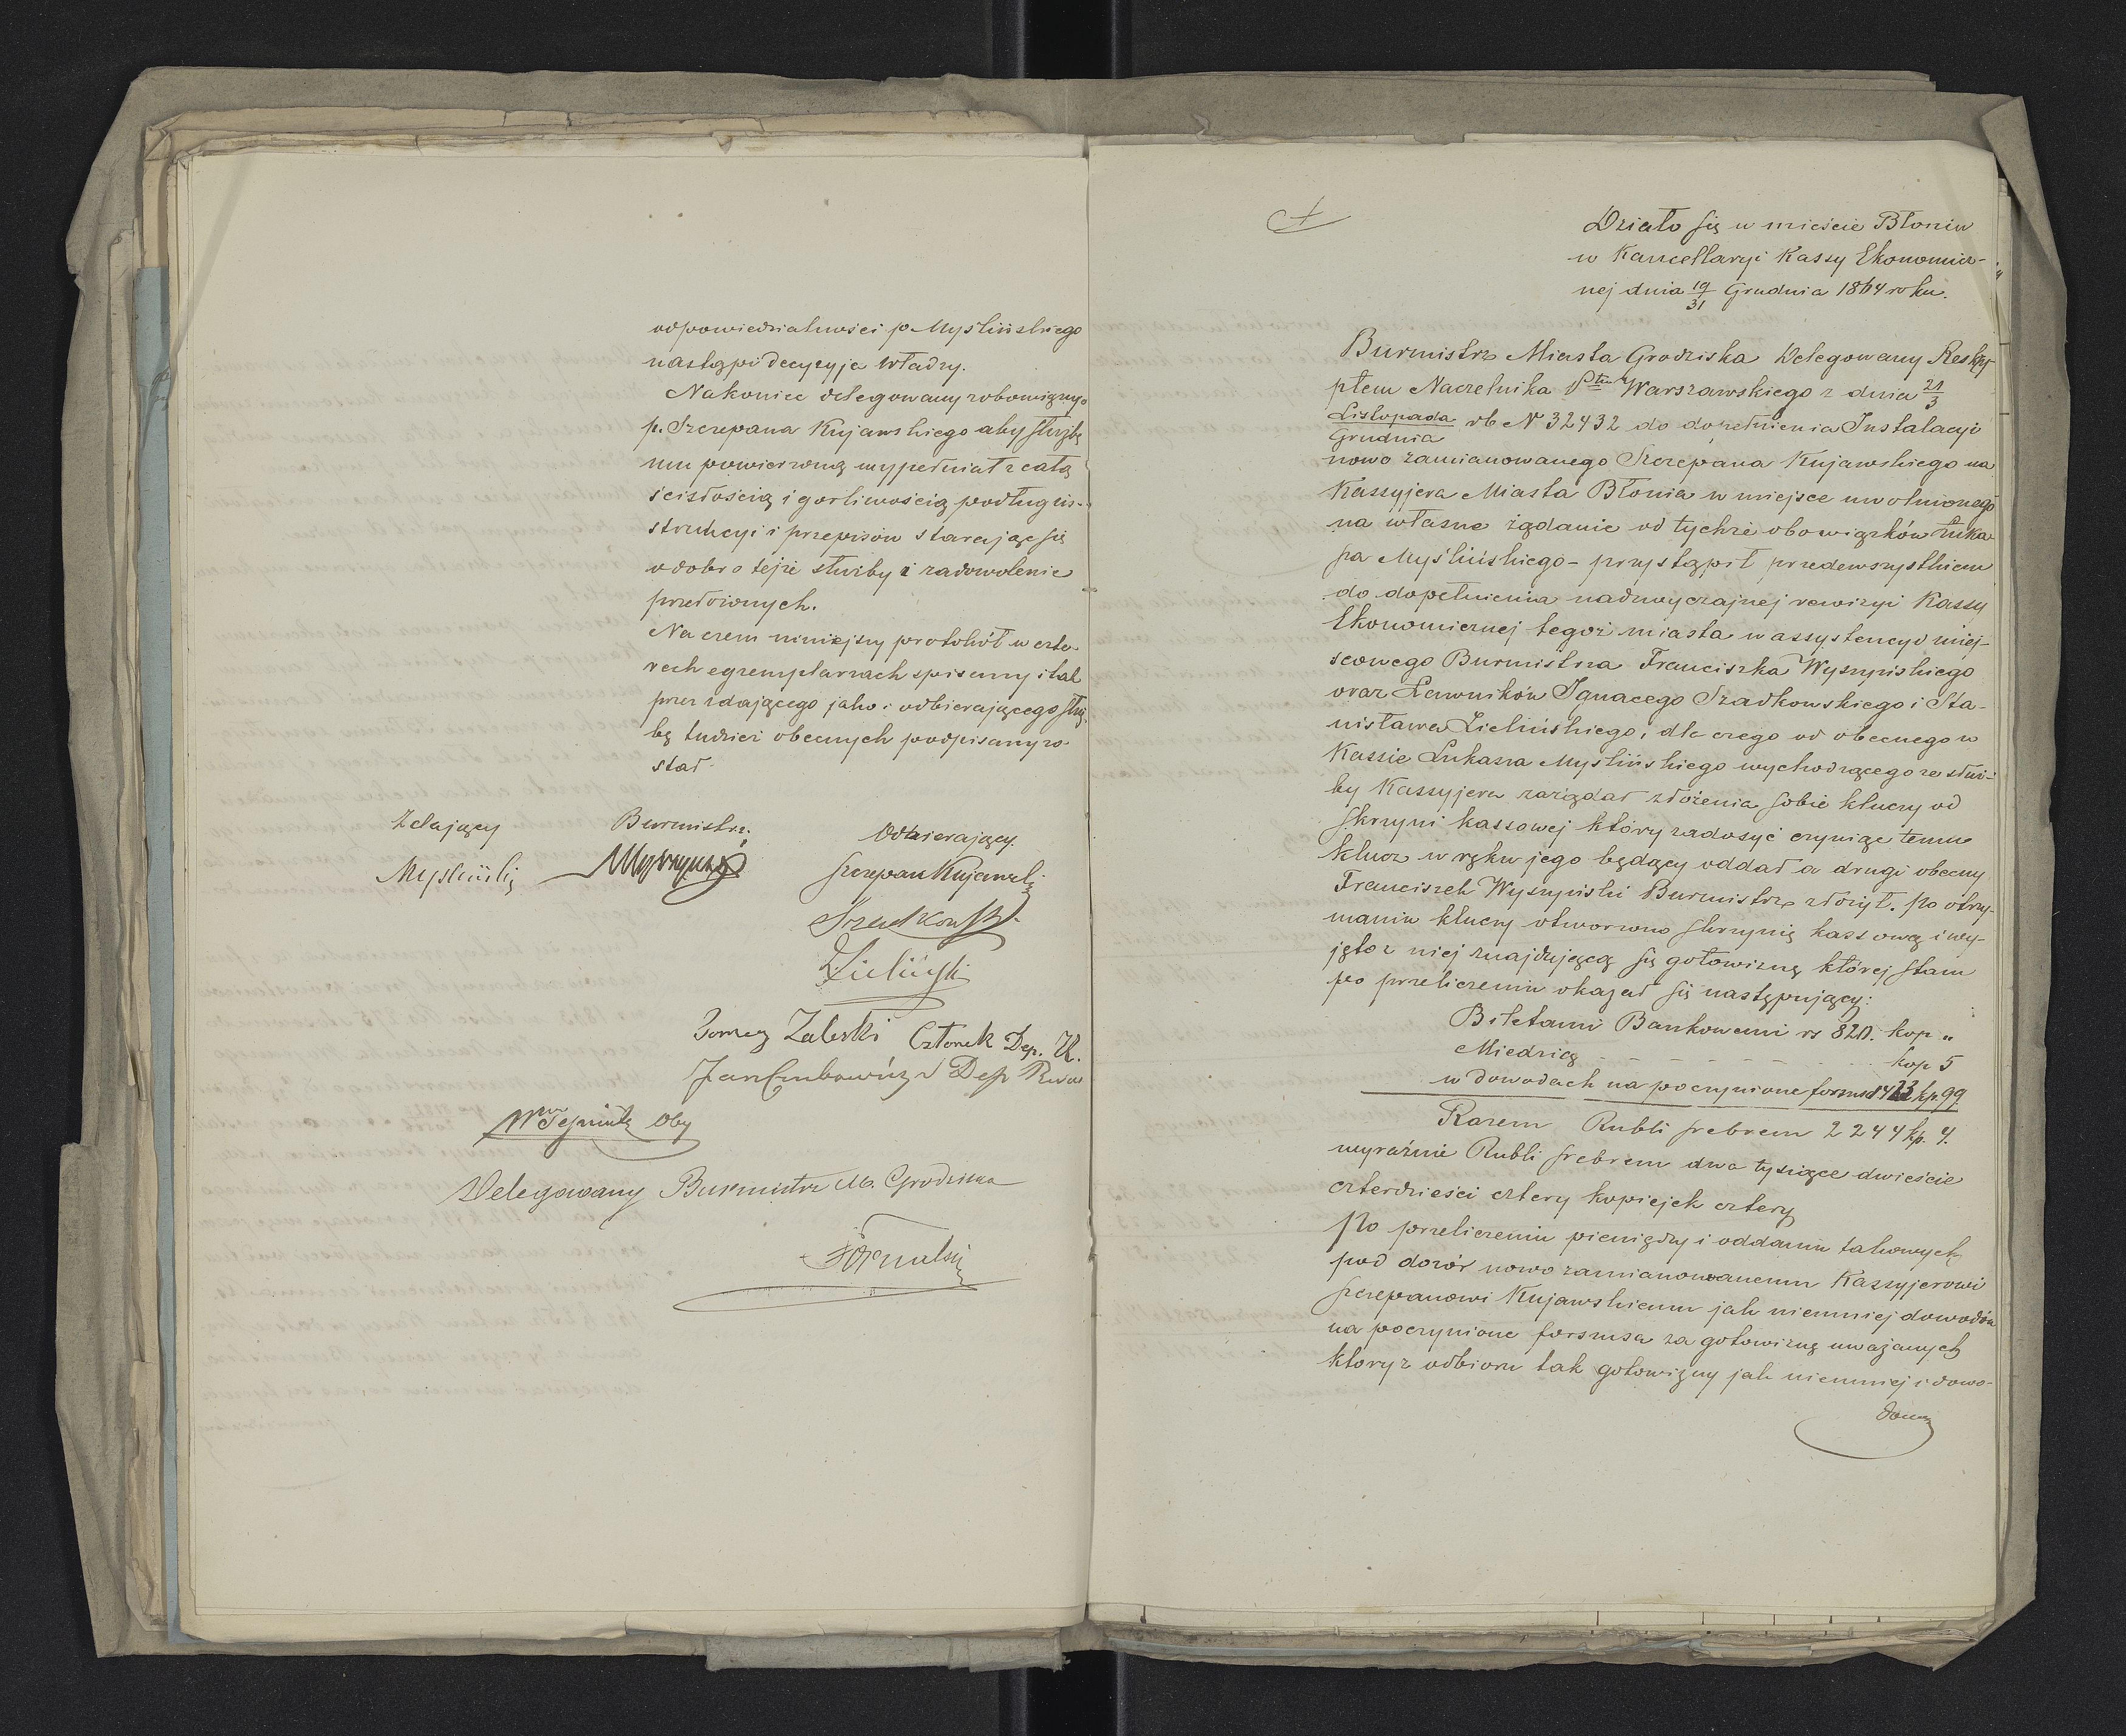 odpowiedzialności p. Myślińskiego
nastąpi decyzyja Władzy.
Nakoniec delegowany zobowiązuje
p. Szczepana Kujawskiego aby służbę
mu powierzoną wypełniał z całą
ścisłością i gorliwością podług in-
strukcyi i przepisów starając się
o dobro tejże służby i zadowolenie
przełożonych.
Na czem niniejszy protokół w czte-
rech egzemplarzach spisany i tak
przez zdającego jako i odbierającego służ-
bę tudzież obecnych podpisany zo-
stał.
Zdający Burmistrz. Odbierający.
Myśliński Szczepan Kujawski
Szadkowski
Zieliński
Tomasz Zaleski Członek Dep. K.
Jan Dep
Oby
Delegowany Burmistrz M. Grodziska

Działo się w mieście Błoniu
w Kancellaryi Kassy Ekonomicz-
nej dnia 19/31 Grudnia 1864 roku.
Burmistrz Miasta Grodziska Delegowany Reskry-
ptem Naczelnika Ptu Warszawskiego z dnia 21/3
Listopada/Grudnia rb N 32432 do dopełnienia Instalacyi
nowo zamianowanego Szczepana Kujawskiego na
Kassyjera Miasta Błonia w miejsce uwolnionego
na własne żądanie od tychże obowiązków Łuka-
sza Myślińskiego - przystąpił przedewszystkiem
do dopełnienia nadzwyczajnej rewizyi Kassy
Ekonomicznej tegoż miasta w assystencyi miej-
scowego Burmistrza Franciszka Wyszyńskiego
oraz Ławników Ignacego Szadkowskiego i Sta-
nisława Zielińskiego, dla czego od obecnego w
Kassie Łukasza Myślińskiego wychodzącego ze służ-
by Kassyjera zażądał złożenia sobie kluczy od
skrzyni kassowej który zadosyć czyniąc temu
klucz w ręku jego będący oddał a drugi obecny
Franciszek Wyszyński Burmistrz złożył. po otrzy-
maniu kluczy otworzono skrzynię kassową i wy-
jęto z niej znajdującą się gotowiznę której stan
po przeliczeniu okazał się następujący:
Biletami Bankowemi rs 820. kop „
Miedzią - - - - - - - kop 5
w dowodach na poczynione forszusa 1423 kp. 99
Razem Rubli srebrem 2244 kp. 4.
wyraźnie Rubli srebrem dwa tysiące dwieście
czterdzieści cztery kopiejek cztery
Po przeliczeniu pieniędzy i oddaniu takowych
pod dozór nowo zamianowanemu Kassyjerowi
Szczepanowi Kujawskiemu jak niemniej dowodów
na poczynione forszusa za gotowiznę uważanych
który z odbioru tak gotowizny jak niemniej i dowo-